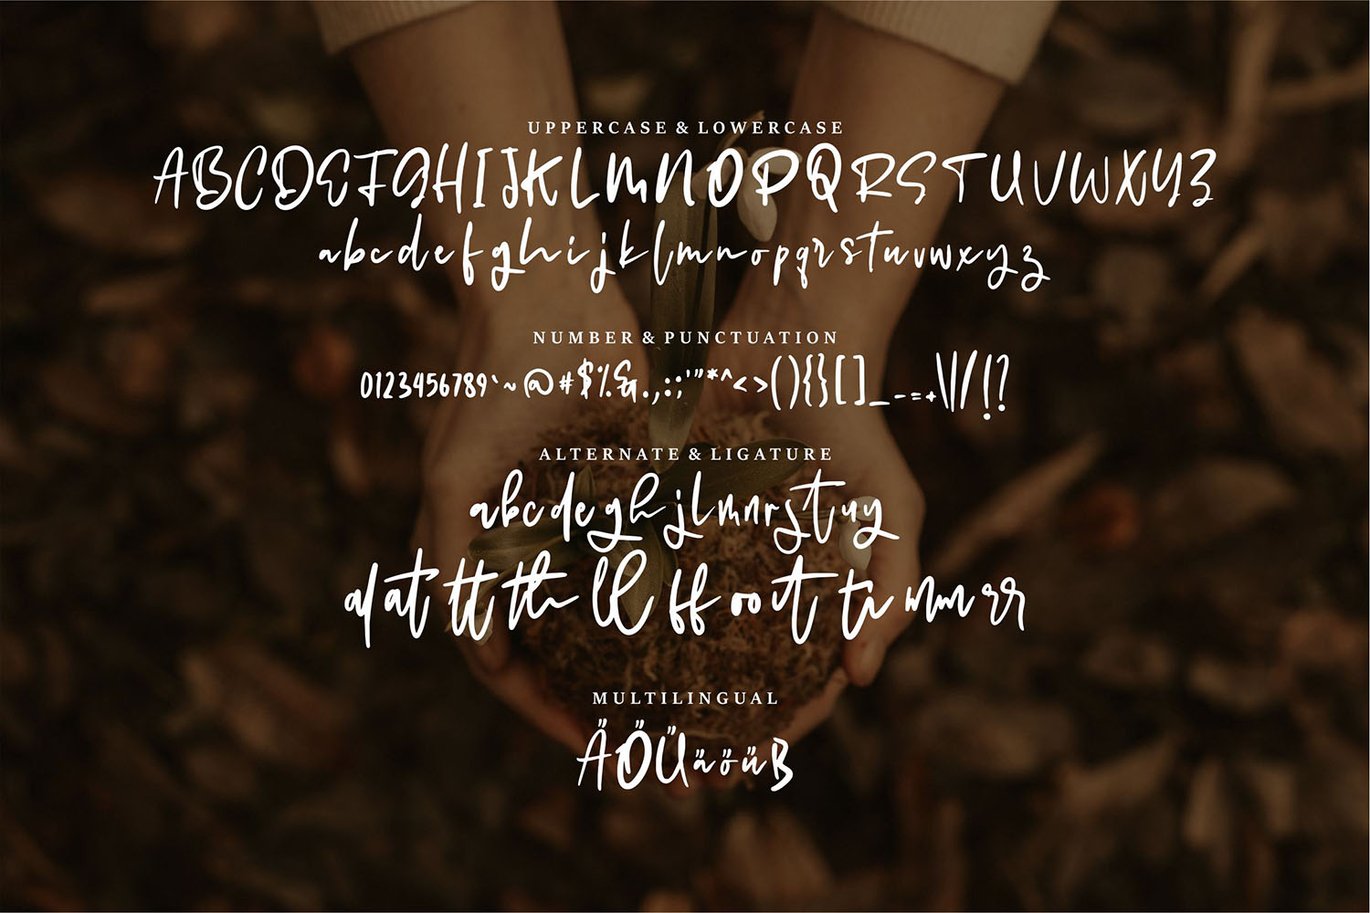 UPPERCASE & LOWERCASE
ABCDEFGHIJKLMNOPQRSTUVWXYZ
abcdefghijklmnopqrstuvwxyz
NUMBER & PUNCTUATION
0123456789`~@#$%&.,:;'"*^<>(){}[]_-=+\|/!?
ALTERNATE & LIGATURE
abcdeghjlmnrstuy
at tt th ll ff oo mm rr
MULTILINGUAL
ÄÖÜäöüß